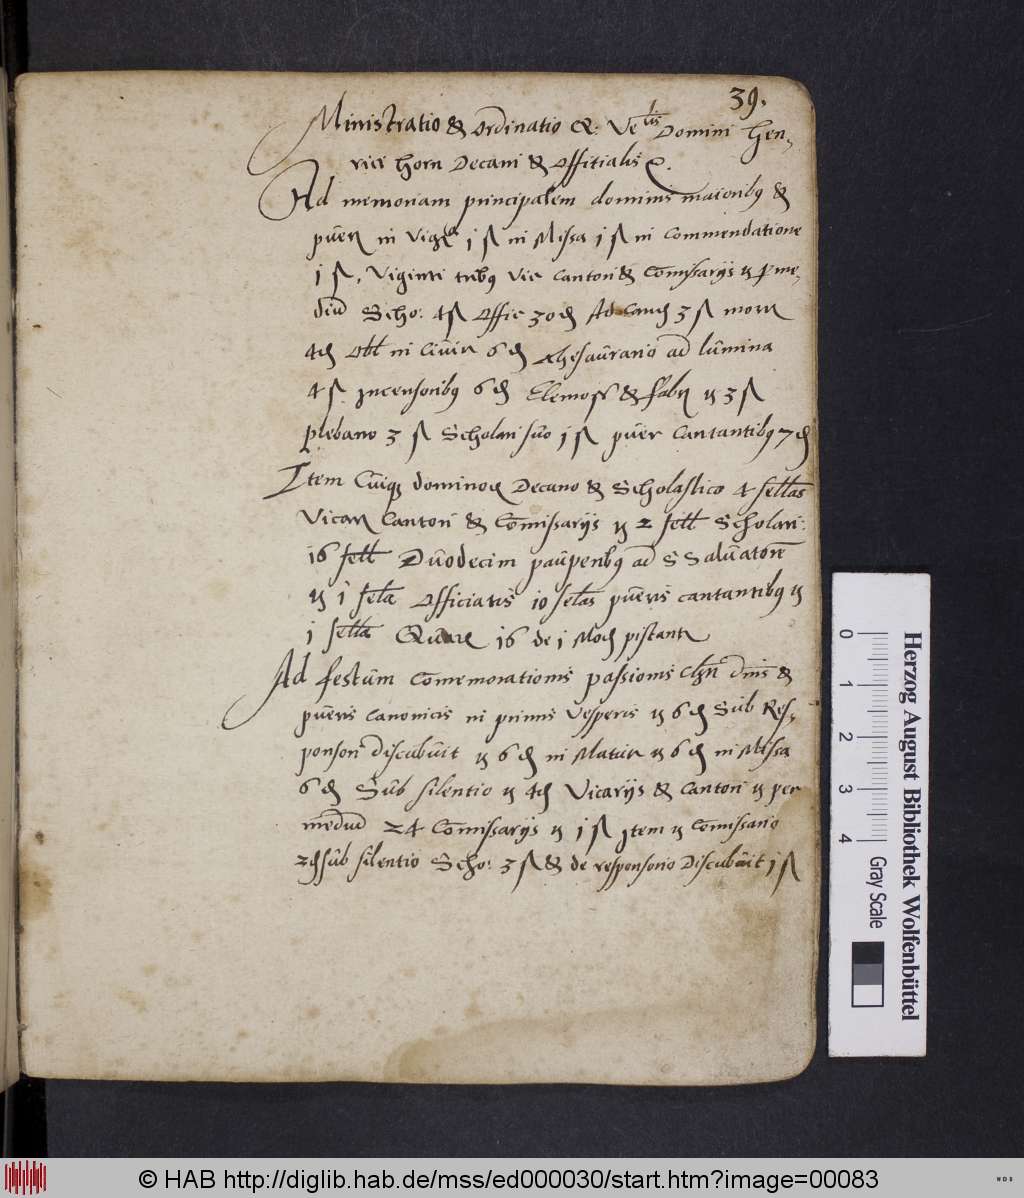 39.
Ministratio & Ordinatio Q: Ve lis Domini Hen-
rici Horn Decani & Offitialis
Ad memoriam principalem dominis maioribus &
puer in Vig ia j ß in Missa j ß in Commendatione
j ß, Viginti tribus Vic Cantori & Comissarijs ij per me-
diu Scho: 4 ß Offic 30 d Ad Cand 3 ß
4 d Obl in 6 d Thesaurario ad lumina
4 ß Incensoribus 6 d Elemos & fabr ij 3 ß
plebano 3 ß Scholari suo j ß puer Cantantibus 7 d
Item Cuiq dominor Decano & Scholastico 4 sellas
Vicar Cantori & Comissarijs ij 2 sell Scholari:
16 sell Duodecim pauperibus ad S Saluatore
ij 1 sela Officiatis 10 selas pueris cantantibus ij
j sella 16 de j Mod pistantr
Ad festum Comemorationis passionis Chri dnis &
pueris Canonicis in primis Vesperis ij 6 d Sub Res-
ponsori discubuit ij 6 d in Matur ij 6 d in Missa
6 d Sub silentio ij 4 d Vicarijs & Cantori ij per
mediu 24 Comissarijs ij j ß Item ij Comissario
2 d sub silentio Scho: 3 ß & de responsorio Discubuit j ß
Herzog August Bibliothek Wolfenbüttel
0 1 2 3 4
Gray Scale
© HAB http://diglib.hab.de/mss/ed000030/start.htm?image=00083